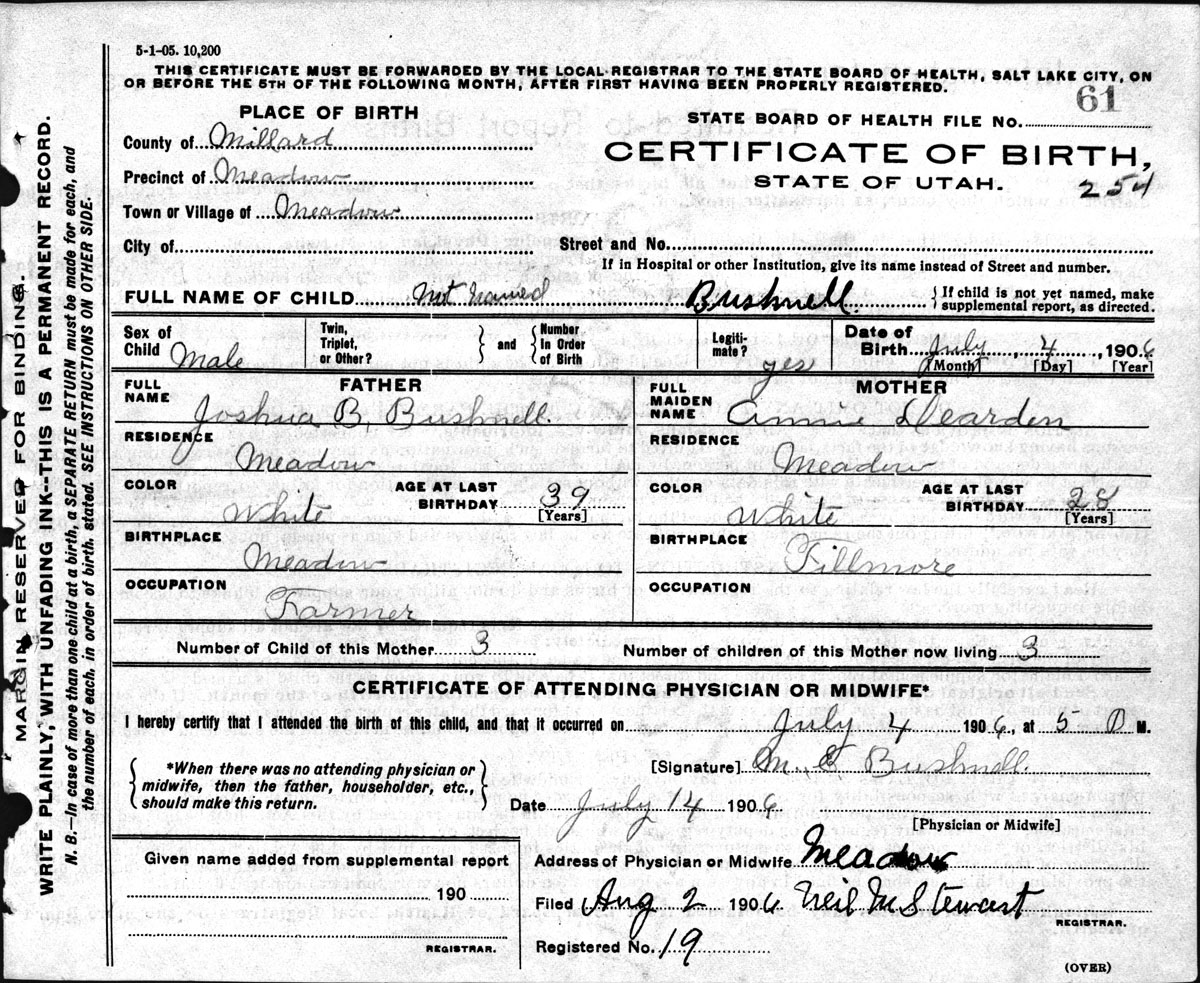 5-1-05. 10,200
THIS CERTIFICATE MUST BE FORWARDED BY THE LOCAL REGISTRAR TO THE STATE BOARD OF HEALTH, SALT LAKE CITY, ON
OR BEFORE THE 5TH OF THE FOLLOWING MONTH, AFTER FIRST HAVING BEEN PROPERLY REGISTERED.
PLACE OF BIRTH
STATE BOARD OF HEALTH FILE No. 61
County of Millard
CERTIFICATE OF BIRTH,
Precinct of Meadow
STATE OF UTAH. 254
Town or Village of Meadow
City of Street and No.
If in Hospital or other Institution, give its name instead of Street and number.
FULL NAME OF CHILD Not Named Bushnell. {If child is not yet named, make
supplemental report, as directed.
Sex of Child Male
Twin, Triplet, or Other? } and { Number In Order of Birth
Legiti- mate? yes
Date of Birth July, 4, 1906
[Month] [Day] [Year]
FATHER
FULL NAME Joshua B. Bushnell.
RESIDENCE Meadow
COLOR White AGE AT LAST BIRTHDAY 39
[Years]
BIRTHPLACE Meadow
OCCUPATION Farmer
MOTHER
FULL MAIDEN NAME Annie Dearden
RESIDENCE Meadow
COLOR White AGE AT LAST BIRTHDAY 28
[Years]
BIRTHPLACE Fillmore
OCCUPATION
Number of Child of this Mother 3 Number of children of this Mother now living 3
CERTIFICATE OF ATTENDING PHYSICIAN OR MIDWIFE*
I hereby certify that I attended the birth of this child, and that it occurred on July 4 1906, at 5 P M.
{ *When there was no attending physician or
midwife, then the father, householder, etc.,
should make this return. }
[Signature] M. E Bushnell.
Date July 14 1906
[Physician or Midwife]
Given name added from supplemental report
190
REGISTRAR.
Address of Physician or Midwife Meadow
Filed Aug 2 1906 Neil M Stewart
REGISTRAR.
Registered No. 19
(OVER)
MARGIN RESERVED FOR BINDING.
WRITE PLAINLY, WITH UNFADING INK--THIS IS A PERMANENT RECORD.
N. B.—In case of more than one child at a birth, a SEPARATE RETURN must be made for each, and
the number of each, in order of birth, stated. SEE INSTRUCTIONS ON OTHER SIDE.